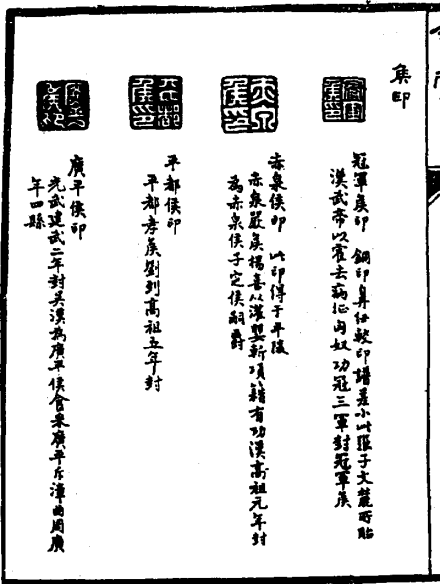 侯印
冠軍侯印 銅印鼻仕較印譜差小此張子文麓所貽
漢武帝以霍去病征匈奴功冠三軍封冠軍侯
赤泉侯印 此印得于平陵
赤泉嚴侯楊喜以灌嬰斬項籍有功漢高祖元年封
為赤泉侯子定侯嗣爵
平都侯印
平都孝侯劉到高祖五年封
廣平侯印
光武建武二年封吳漢為廣平侯食采廣平斥漳曲周廣
年四縣